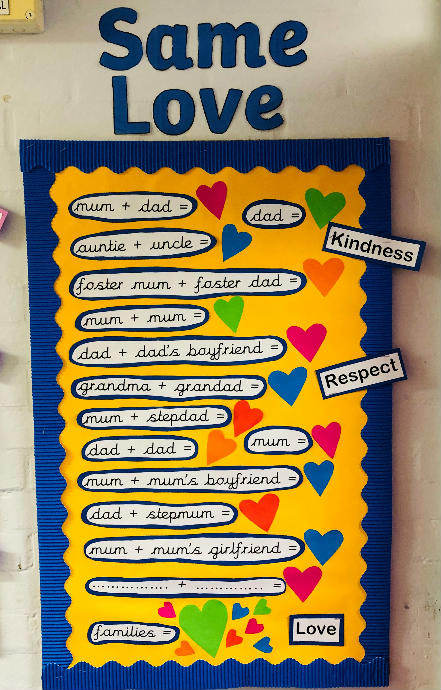 Same
Love
mum + dad =
dad =
Kindness
auntie + uncle =
foster mum + foster dad =
mum + mum =
dad + dad's boyfriend =
Respect
grandma + grandad =
mum + stepdad =
dad + dad =
mum =
mum + mum's boyfriend =
dad + stepmum =
mum + mum's girlfriend =
............... + ............... =
families =
Love